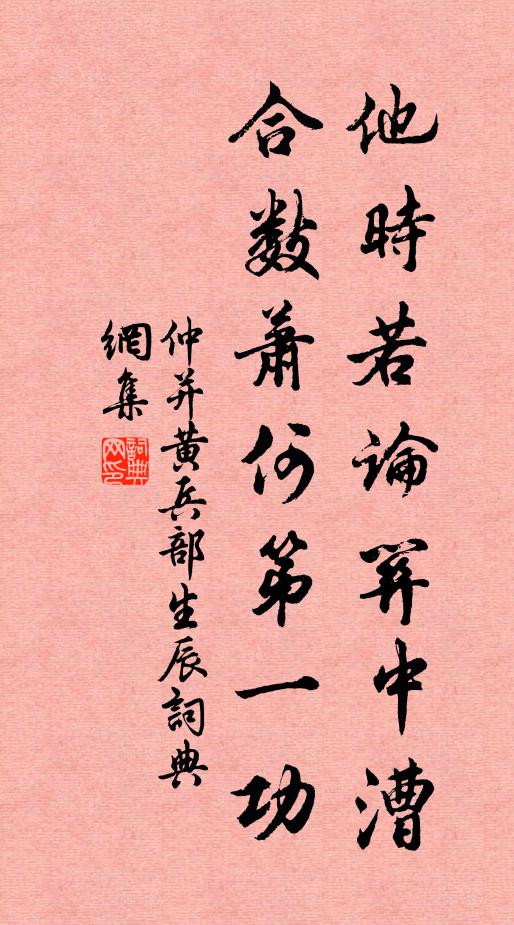 他時若論關中漕
合數蕭何第一功
仲并黃兵部生辰詞典
網集
詞典網印